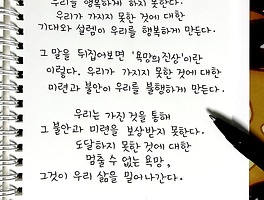 우리를 행복하게 하지 못한다.
우리가 가지지 못한 것에 대한
기대와 설렘이 우리를 행복하게 만든다.
그 말을 뒤집어보면 '욕망의 진상'이란
이렇다. 우리가 가지지 못한 것에 대한
미련과 불안이 우리를 불행하게 만든다.
우리는 가진 것을 통해
그 불안과 미련을 보상받지 못한다.
도달하지 못한 것에 대한
멈출 수 없는 욕망,
그것이 우리 삶을 밀어나간다.